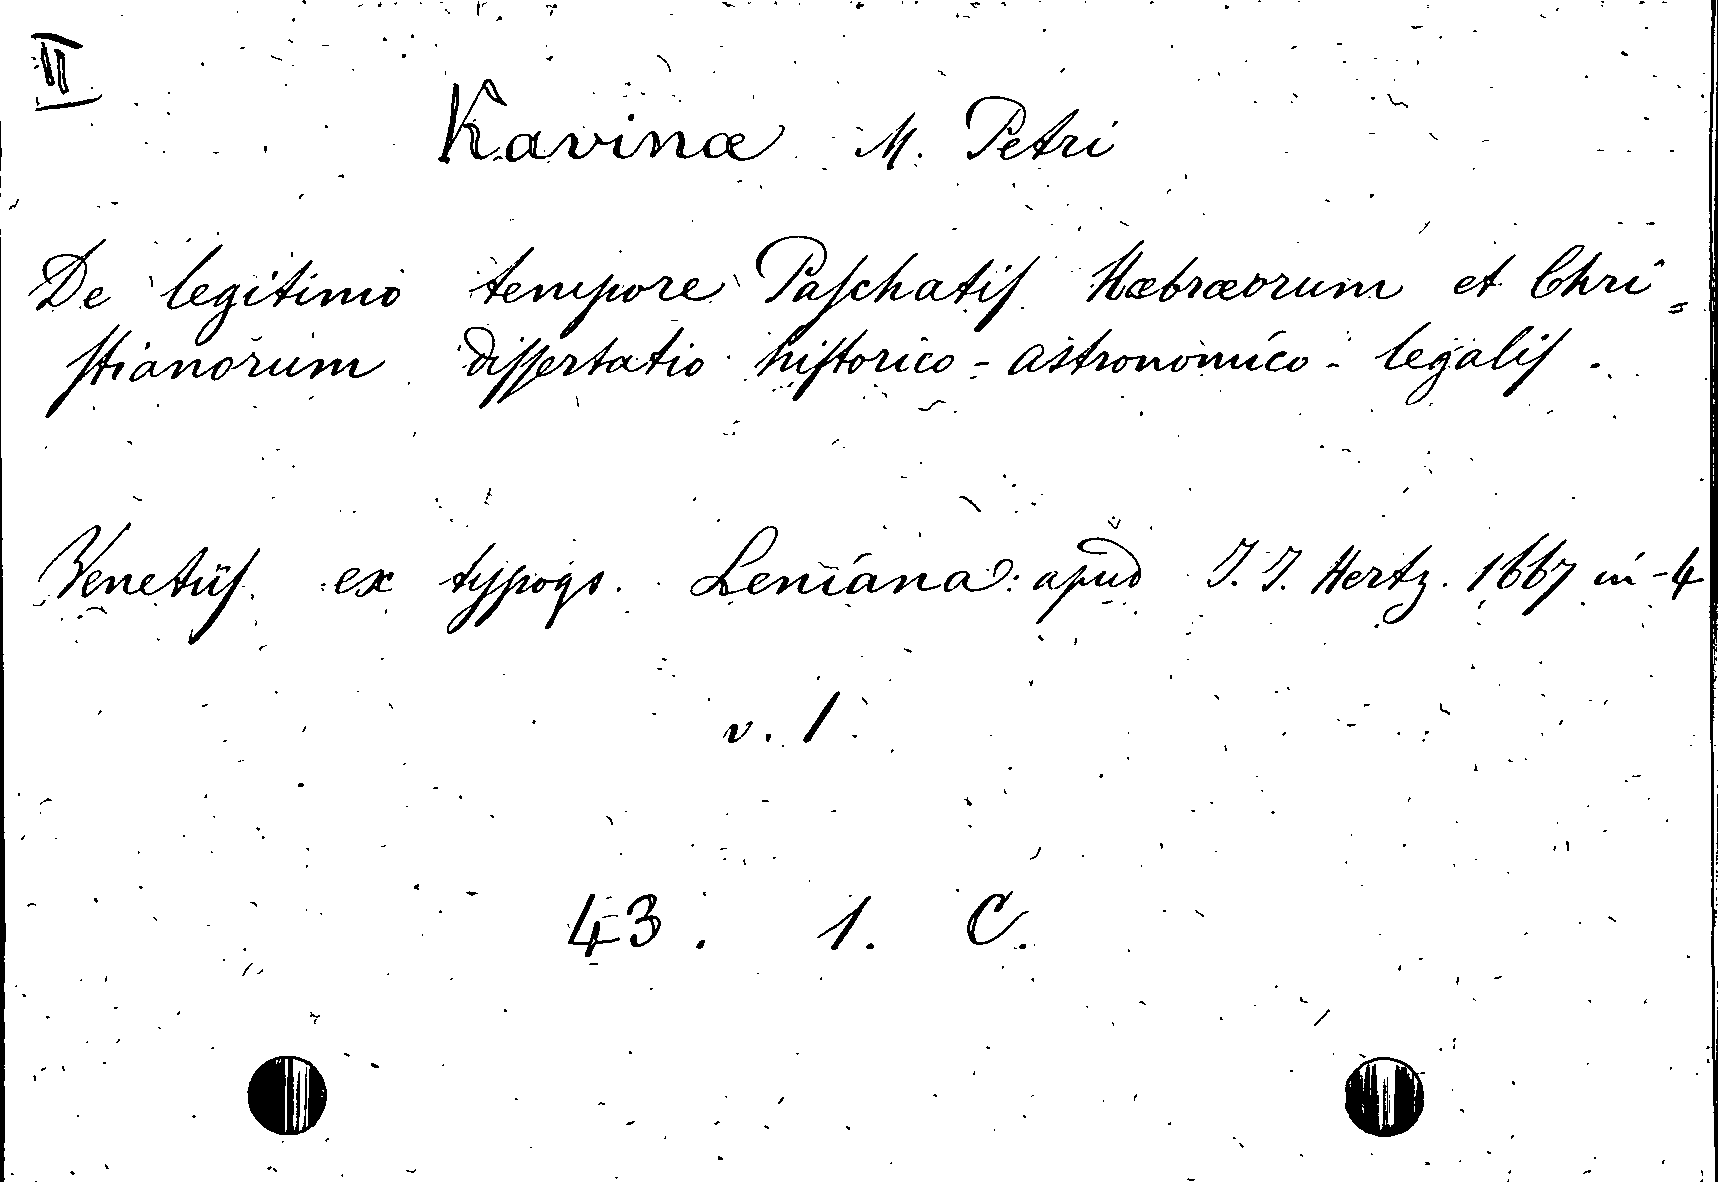 II
Kavinæ M. Petri
De legitimo tempore Paſchatiſ Hæbræorum et Chri=
ſtianorum diſſertatio hiſtorico-astronomico-legaliſ.
Venetiiſ ex typogr. Leniana: apud I. I. Hertz. 1667 in-4
v. 1
43. 1. C.